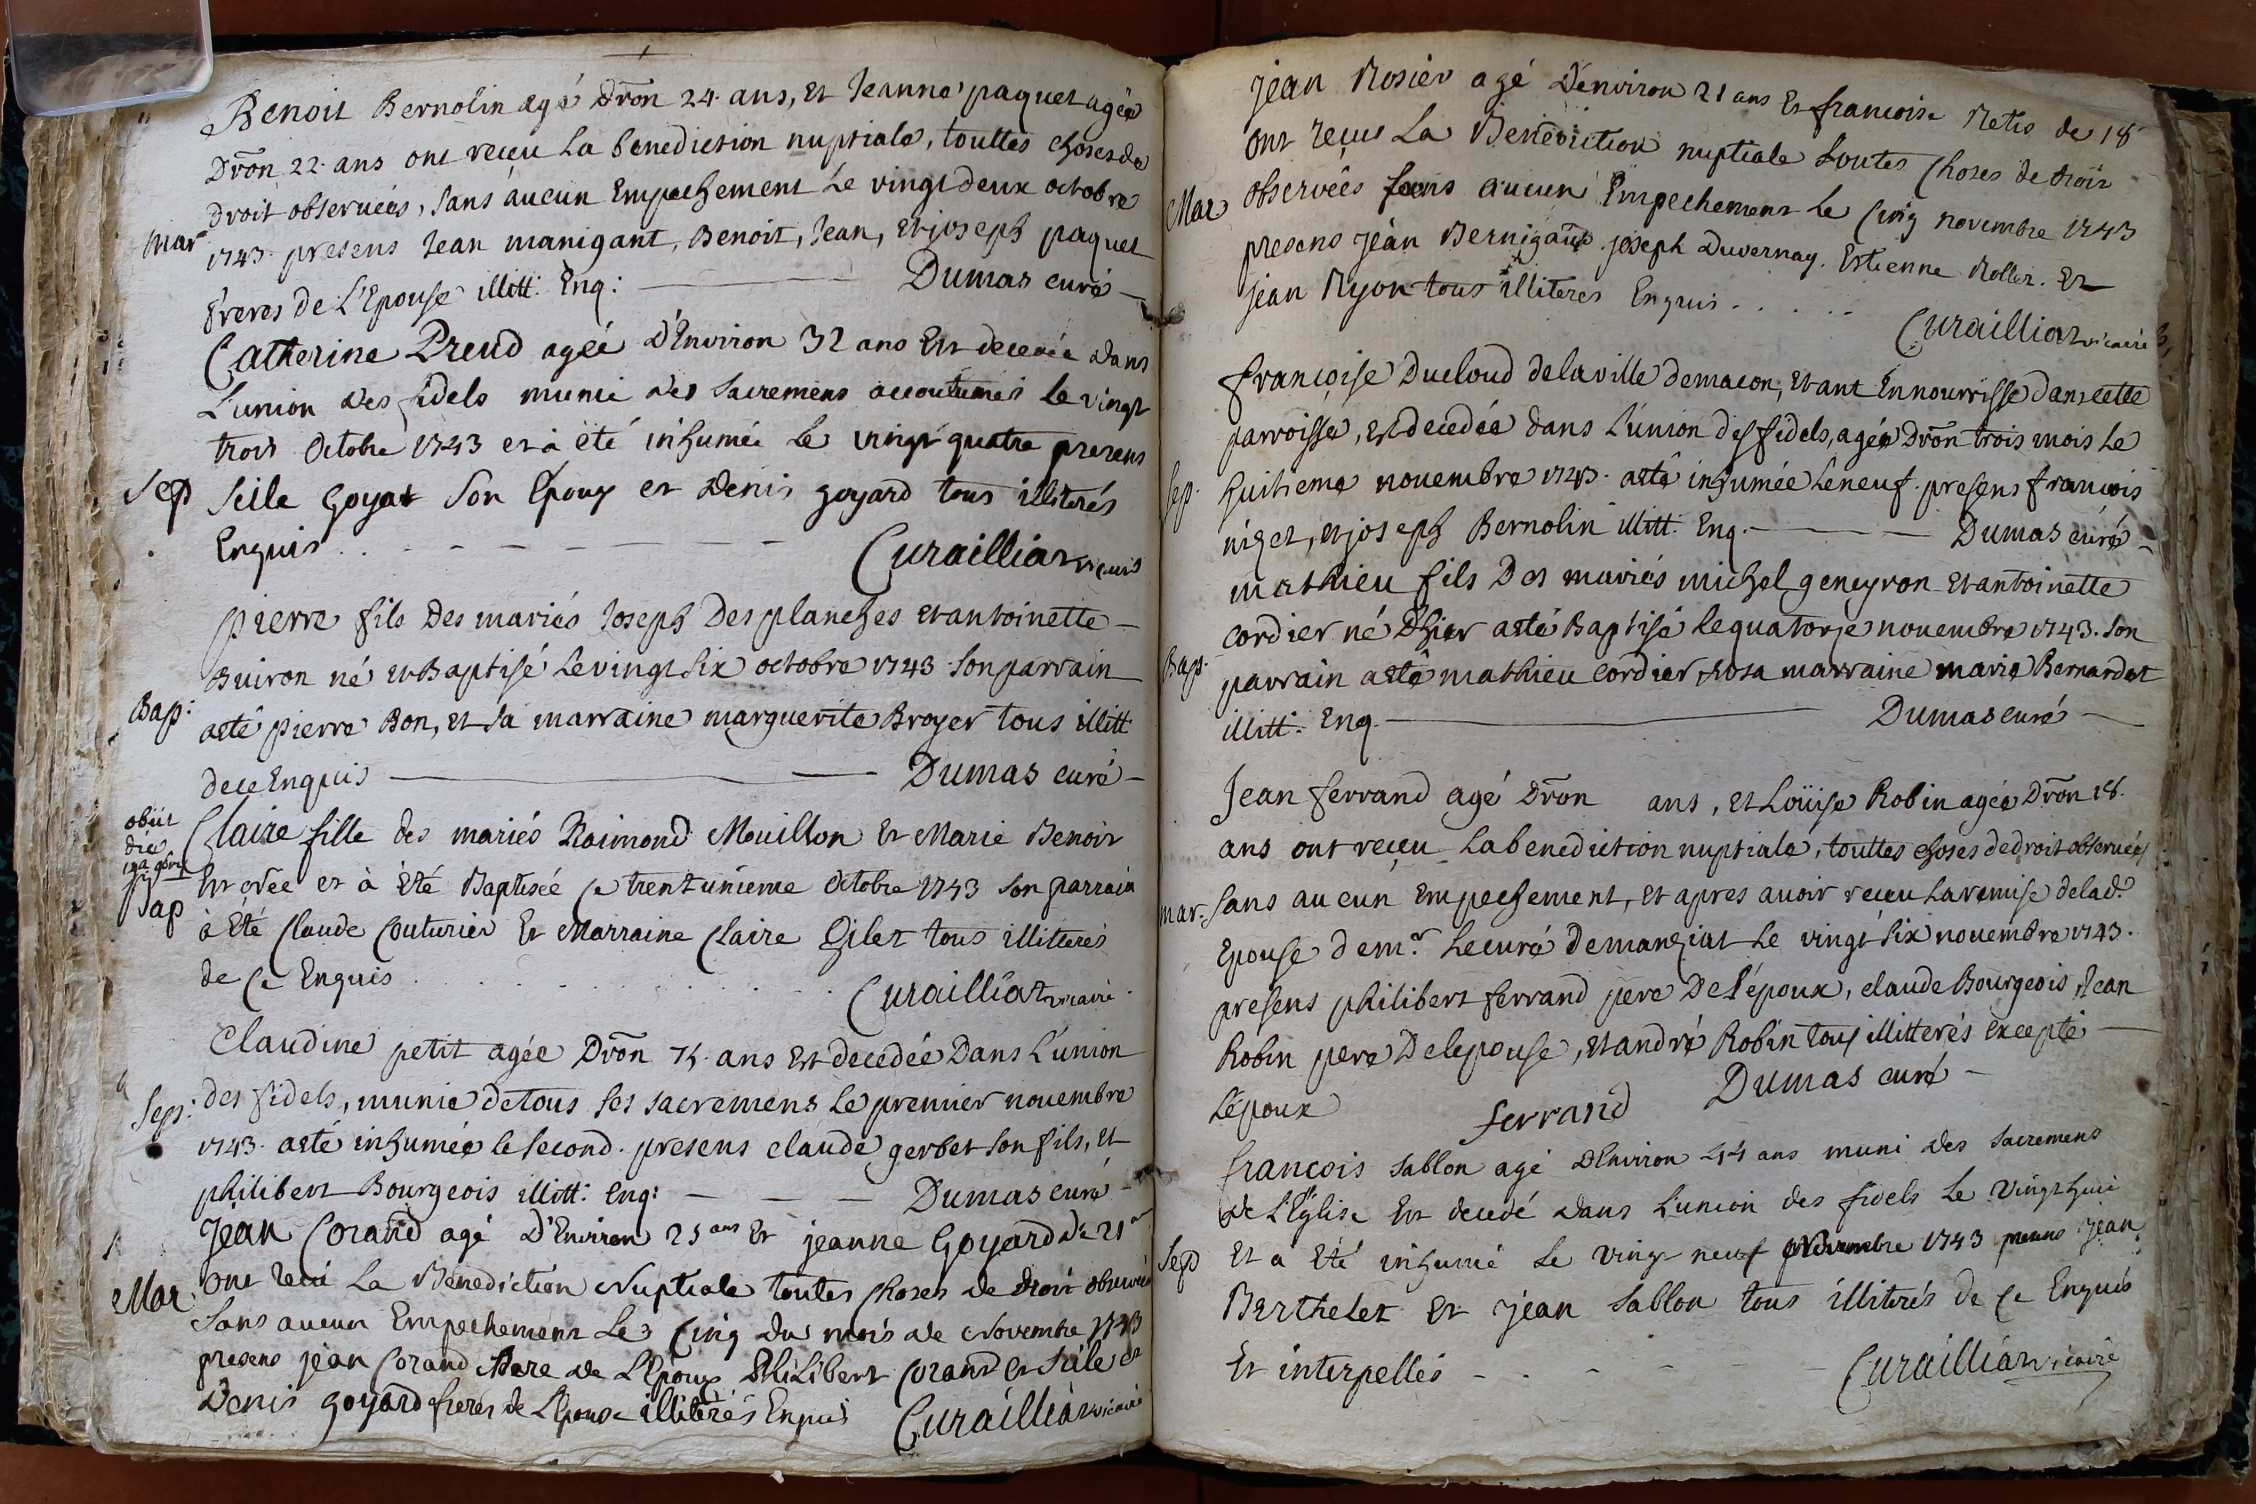 Benoit Bernolin agé Dron 24 ans, et Jeanne paquet agée
Dron 22 ans ont reçeu la benediction nuptiale, touttes choses de
droit observées, sans aucun Empechement le vingt deux octobre
Mar
1743. presens Jean manigant, Benoit, Jean, et joseph paquet
freres de L'Epouse illitt: Enq:
Dumas curé
Catherine Preud agéé d'Environ 32 ans Est decedée dans
L'union des fidels munie des Sacremens accoutumés le vingt
trois Octobre 1743 et à été inhumée le vingt quatre presens
Sep
Seile Goyat Son Epoux et Denis goyard tous illiterés
Enquis
Curailliat vicaire
pierre fils Des mariés Joseph Desplanches et antoinette
Buiron né et Baptisé le vingt six octobre 1743 son parrain
Bap:
a esté pierre Bon, et sa marraine marguerite Broyer tous illitt
de ce Enquis
Dumas curé
obiit
die
9bris
Claire fille des mariés Raimond Mouillon Et Marie Benoit
Bap
Est née et à Eté Baptisée ce trent'unieme Octobre 1743 son parrain
à Eté Claude Couturier Et Marraine Claire Gilet tous illitterés
de Ce Enquis
Curailliat vicaire
Claudine petit agée Dron 75 ans Est decedée Dans L'union
Sep:
des fidels, munie de tous ses sacremens le premier novembre
1743. a esté inhumée le second. presens claude gerbet son fils, et
philibert Bourgeois illitt: Enq:
Dumas curé
Jean Corand agé d'Environ 25 ans Et jeanne Goyard de 21 ans
Mar
Ont recû La Benediction Nuptiale toutes Choses de Droit observées
Sans aucun Empechement Le Cinq du mois de Novembre 1743
presens jean Corand Pere de L'Epoux Philibert Corand et Seile et
Denis Goyard freres de L'Epouse illiterés Enquis
Curailliat vicaire
Jean Rosier agé D'environ 21 ans Et francoise Netis de 18
Ont reçus La Benediction nuptiale toutes Choses de droit
Mar
observées sans aucun Empechement Le Cinq novembre 1743
presens Jean Bernigaud joseph Duvernay. Estienne Rollet. Et
jean Ryon tous illiteres Enquis
Curailliat vicaire
françoise Ducloud de la ville de macon, etant En nourrisse dans cette
parroisse, est decedée dans L'union des fidels, agée Dron trois mois le
Sep.
huitieme novembre 1743. a esté inhumée le neuf. presens francois
niget, et joseph Bernolin illitt. Enq.
Dumas curé
mathieu fils Des mariés michel geneyron et antoinette
cordier né D'hier a esté Baptisé le quatorze novembre 1743. son
Bap.
parrain a esté mathieu cordier, et sa marraine marie Bernardet
illitt: Enq.
Dumas curé
Jean ferrand agé Dron ans, et Loüise Robin agée Dron 18.
ans ont reçeu la benediction nuptiale, touttes choses de droit observées
mar.
sans aucun Empechement, et apres avoir reçeu la remise de lad.e
Epouse de mr. le curé de manziat le vingt six novembre 1743.
presens philibert ferrand pere De l'époux, claude Bourgeois, Jean
Robin pere De lepouse, et andré Robin tous illitterés excepté
L'époux
ferrand
Dumas curé
francois Sablon agé d'Environ 44 ans muni des Sacremens
de L'Eglise Est decedé dans L'union des fidels le vingt huit
Sep
Et a Eté inhumé Le vingt neuf Novembre 1743 presens jean
Berthelet Et jean Sablon tous illiterés de Ce Enquis
Et interpellés
Curailliat vicaire